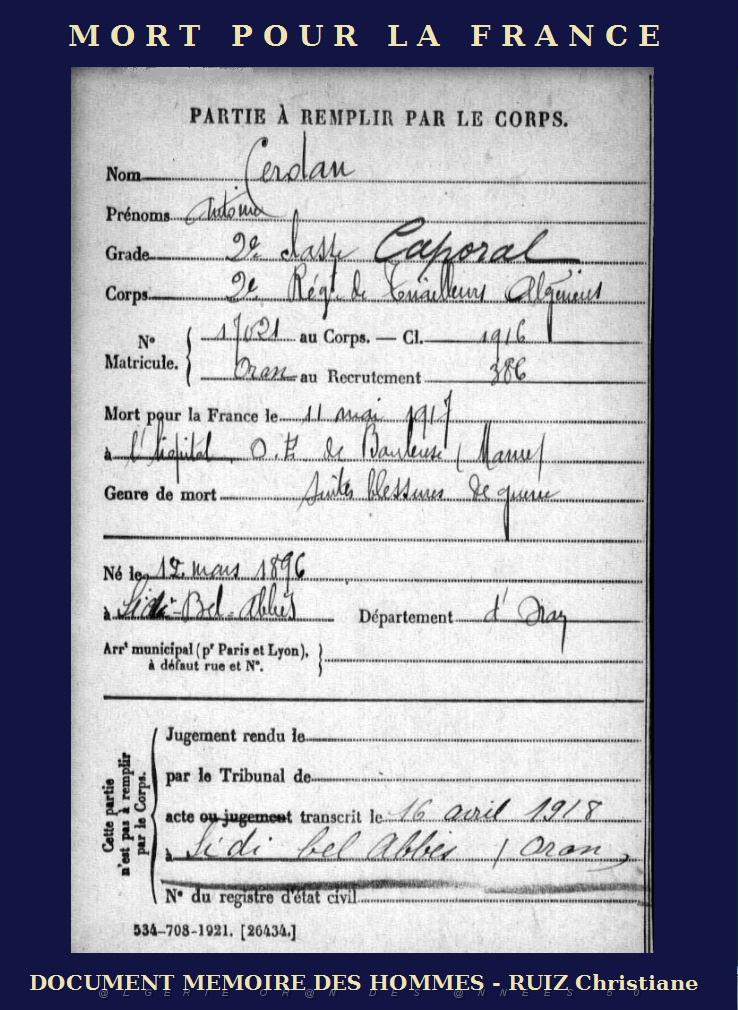 MORT POUR LA FRANCE
PARTIE À REMPLIR PAR LE CORPS.
Nom Cerdan
Prénoms Antoine
Grade 2e classe Caporal
Corps 2e Régt de Tirailleurs Algériens
No Matricule. 17021 au Corps. — Cl. 1916
Oran au Recrutement 386
Mort pour la France le 11 mai 1917
à l'hôpital O.E de (Marne)
Genre de mort Suites blessures de guerre
Né le 12 mars 1896
à Sidi-Bel-Abbès Département d'Oran
Arrt municipal (pr Paris et Lyon),
à défaut rue et No.
Cette partie n'est pas à remplir par le Corps.
Jugement rendu le
par le Tribunal de
acte ou jugement transcrit le 16 avril 1918
à Sidi bel Abbès (Oran)
No du registre d'état civil
534-708-1921. [26434.]
DOCUMENT MEMOIRE DES HOMMES - RUIZ Christiane